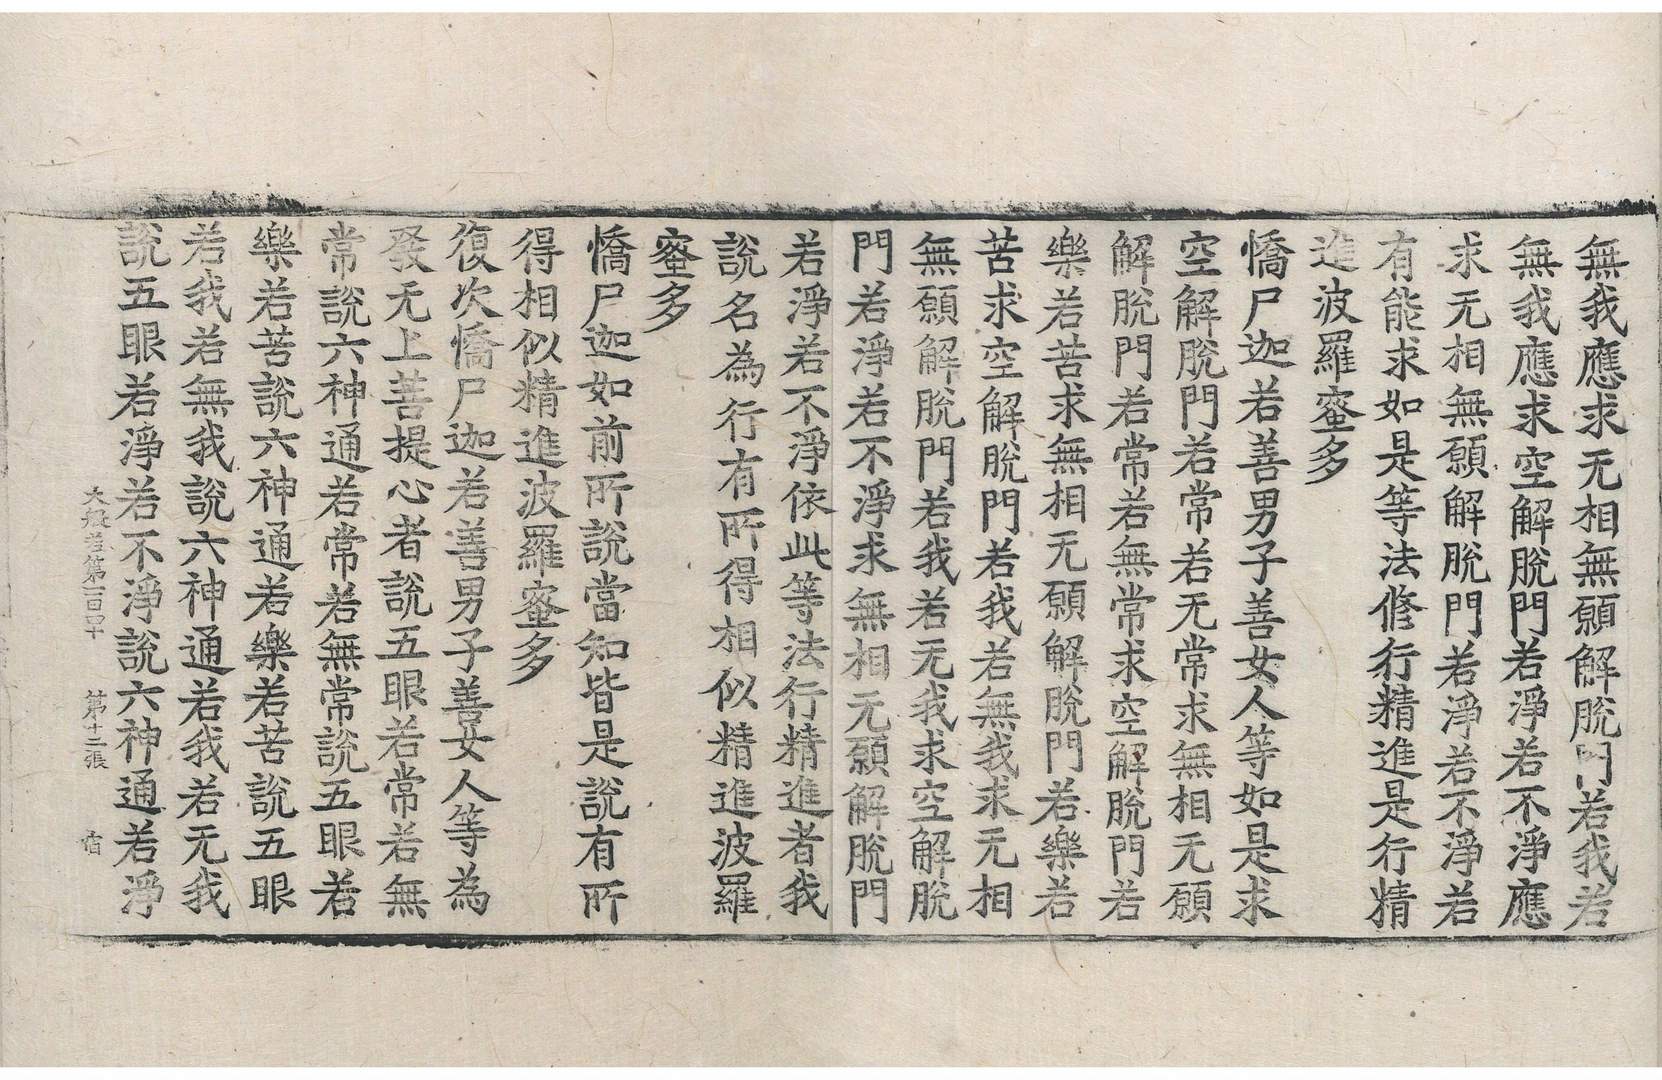 無我應求无相無願解脫門若我若
無我應求空解脫門若淨若不淨應
求无相無願解脫門若淨若不淨若
有能求如是等法修行精進是行精
進波羅蜜多
憍尸迦若善男子善女人等如是求
空解脫門若常若无常求無相无願
解脫門若常若無常求空解脫門若
樂若苦求無相无願解脫門若樂若
苦求空解脫門若我若無我求无相
無願解脫門若我若无我求空解脫
門若淨若不淨求無相无願解脫門
若淨若不淨依此等法行精進者我
說名為行有所得相似精進波羅
蜜多
憍尸迦如前所說當知皆是說有所
得相似精進波羅蜜多
復次憍尸迦若善男子善女人等為
發无上菩提心者說五眼若常若無
常說六神通若常若無常說五眼若
樂若苦說六神通若樂若苦說五眼
若我若無我說六神通若我若无我
說五眼若淨若不淨說六神通若淨
大般若第一百四十 第十二張 宿